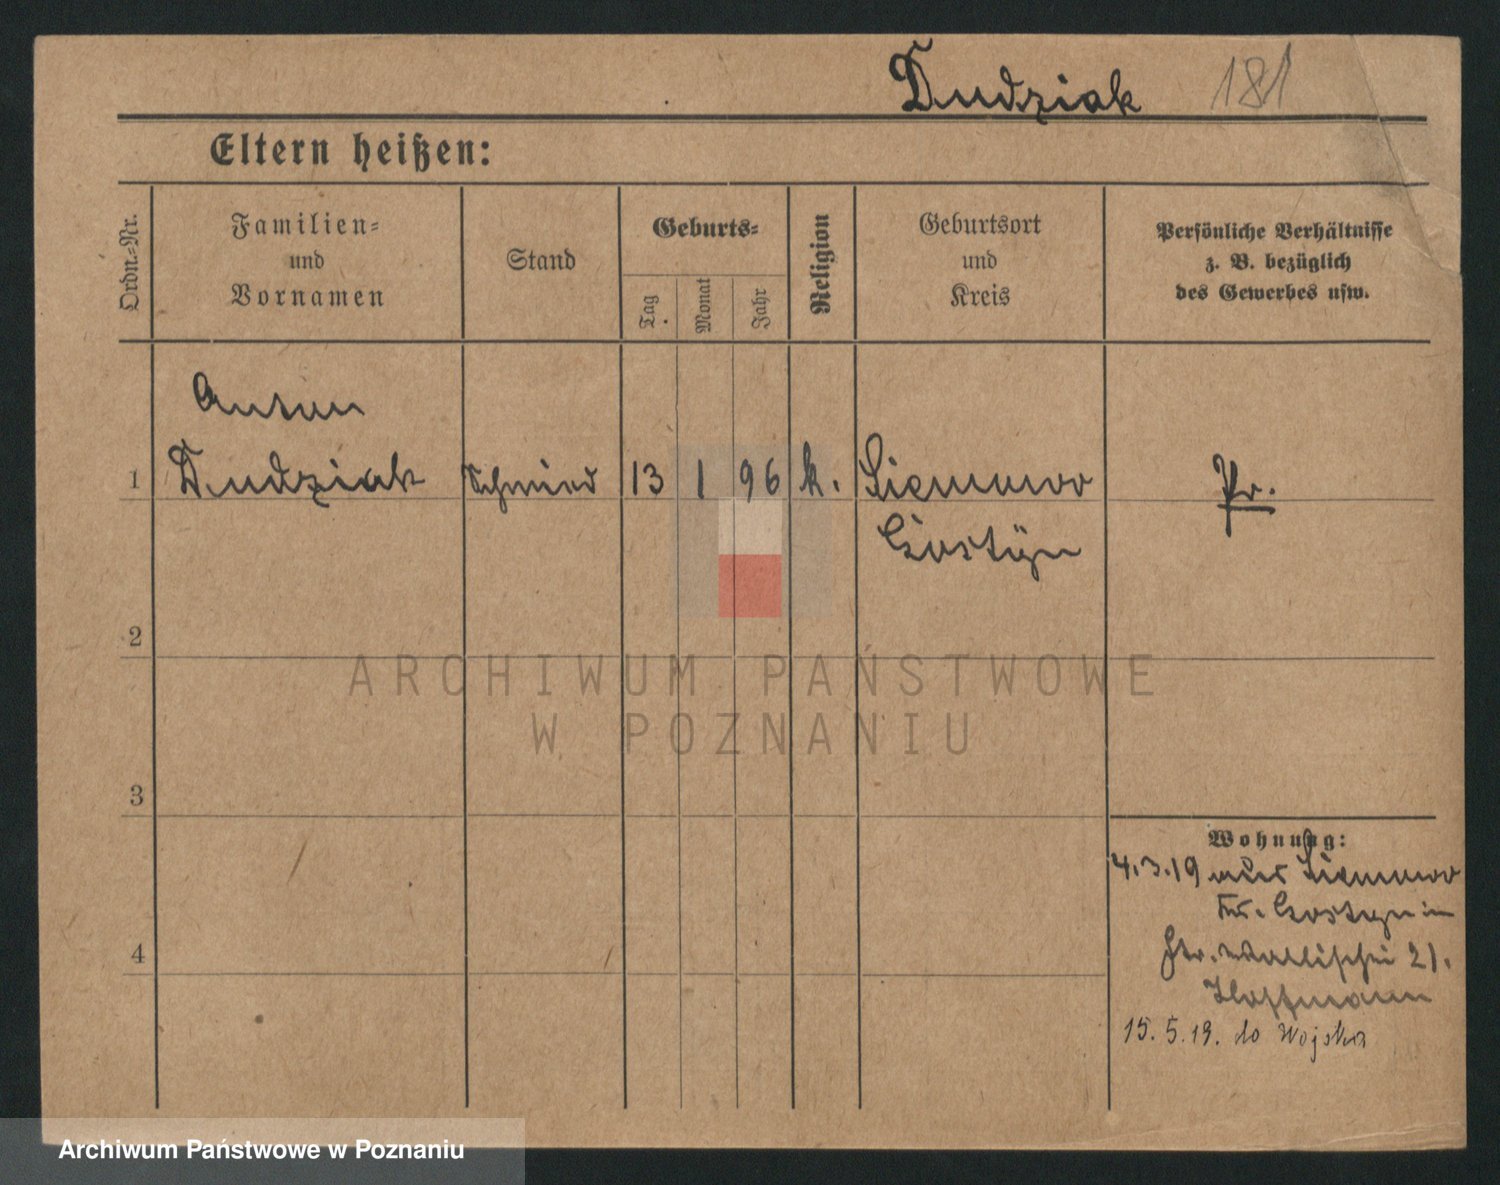 Dudziak 181
Eltern heißen:
Ordn.-Nr.
Familien-
und
Vornamen
Stand
Geburts-
Tag
Monat
Jahr
Religion
Geburtsort
und
Kreis
Persönliche Verhältnisse
z. B. bezüglich
des Gewerbes usw.
Anton
1 Dudziak Schmied 13 1 96 k. Siemowo Pr.
Gostÿn
2
ARCHIWUM PAŃSTWOWE
W POZNANIU
3
Wohnung:
4.3.19 aus Siemowo
Kr. Gostyn in
Wallischei 21.
4
Hoffmann
15.5.19. do Wojska
Archiwum Państwowe w Poznaniu